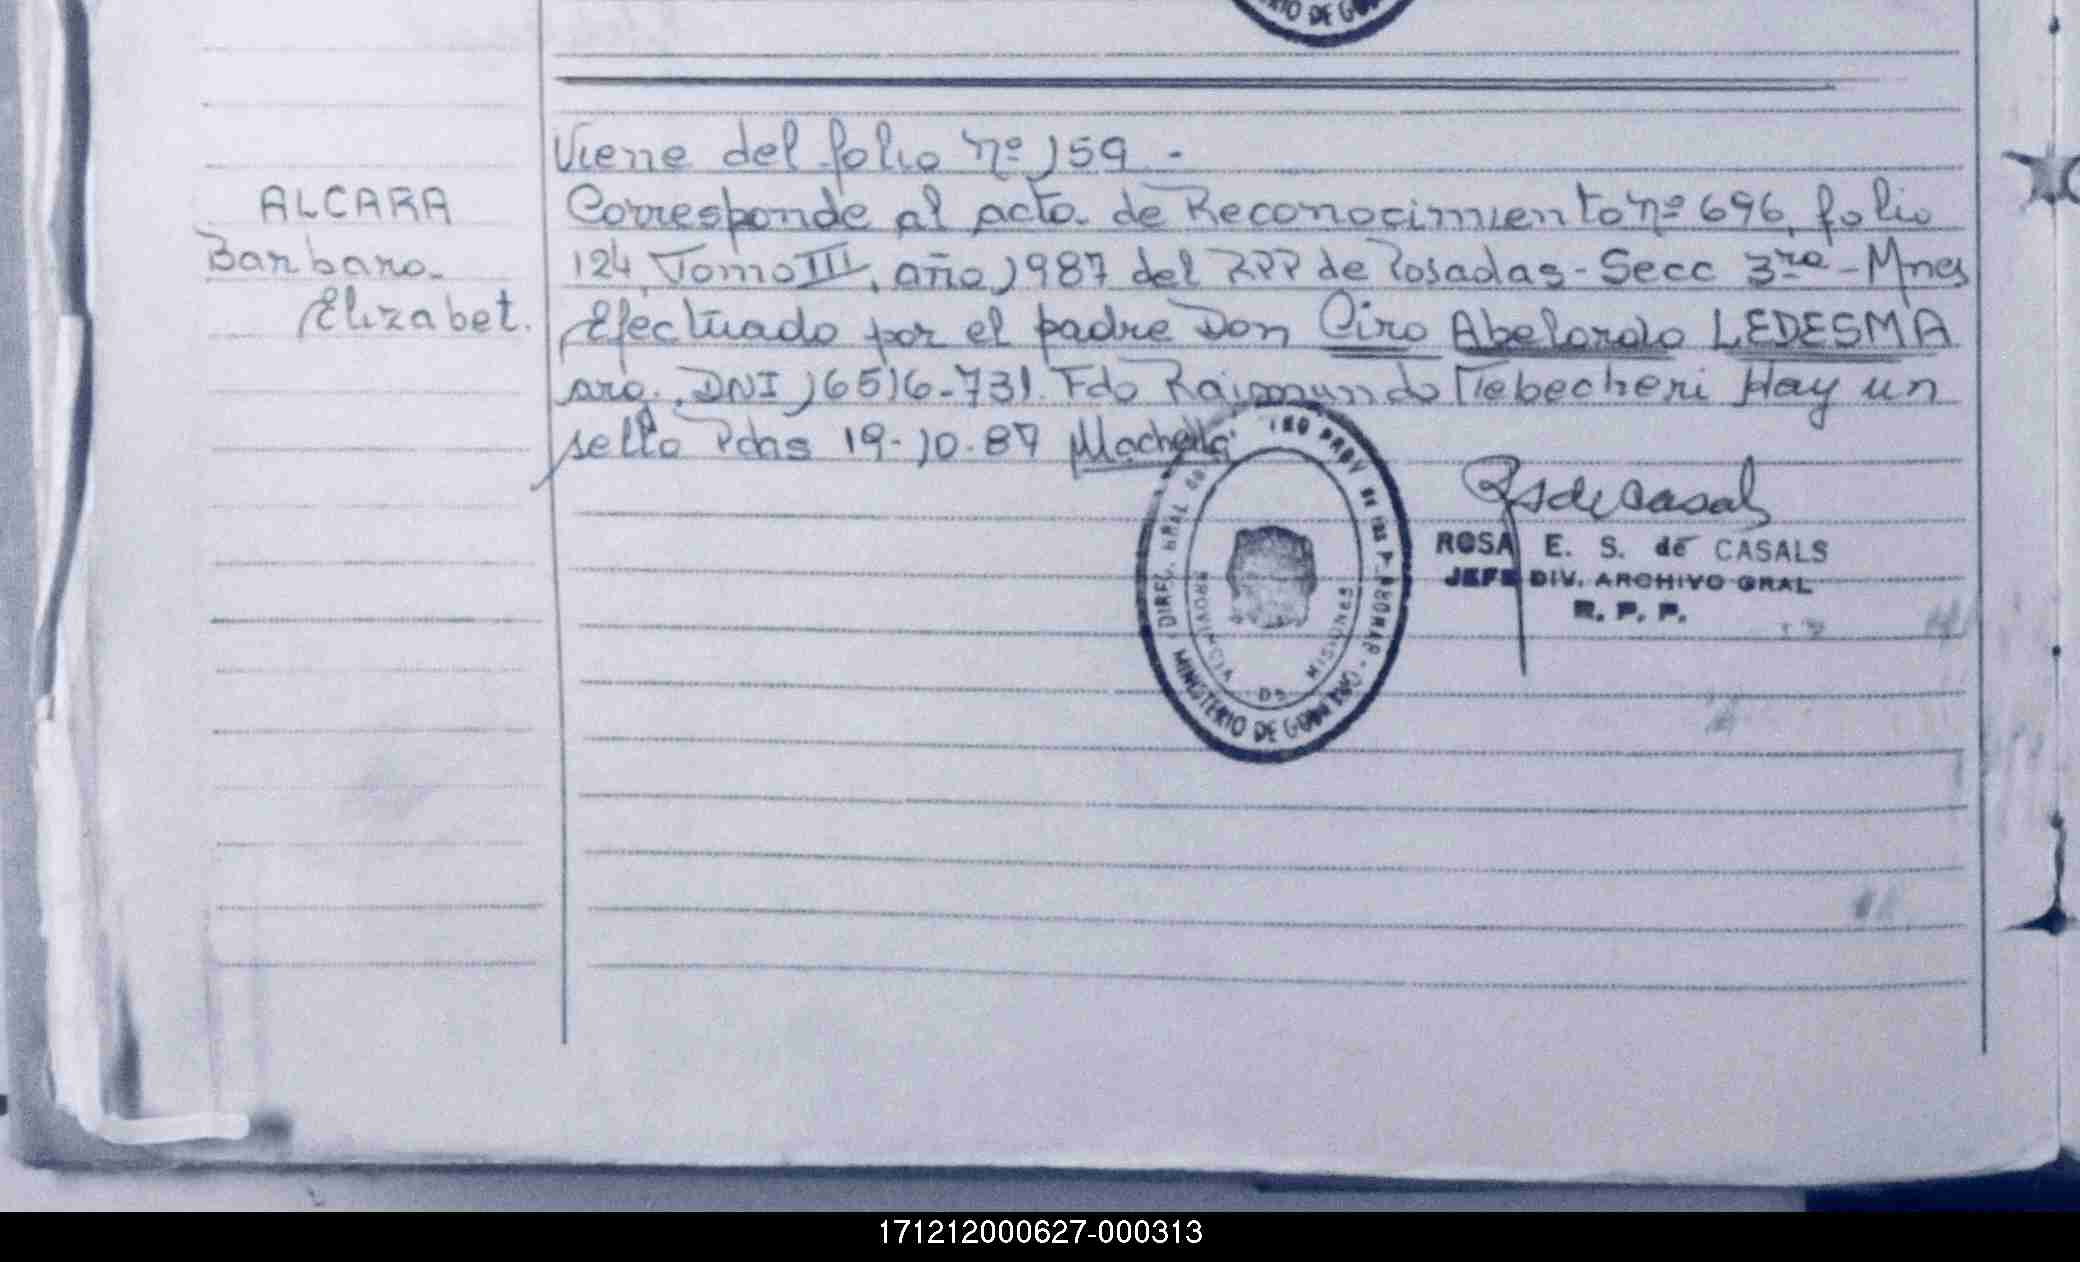 RIO DE GO
Viene del folio nº 159 -
ALCARA
Barbara
Elizabet.
Corresponde al acta de Reconocimiento nº 696, folio
124, Tomo III, año 1987 del RPP de Posadas - Secc 3ra - Mnes
Efectuado por el padre Don Ciro Abelardo LEDESMA
arg. DNI 16516-731. Fdo Raimundo Hay un
sello Pdas 19-10-87
ROSA E. S. de CASALS
JEFE DIV. ARCHIVO GRAL
R. P. P.
DIREC. GRAL
PROV DE LAS P.
MINISTERIO DE GOBIERNO
PROVINCIA DE MISIONES
171212000627-000313